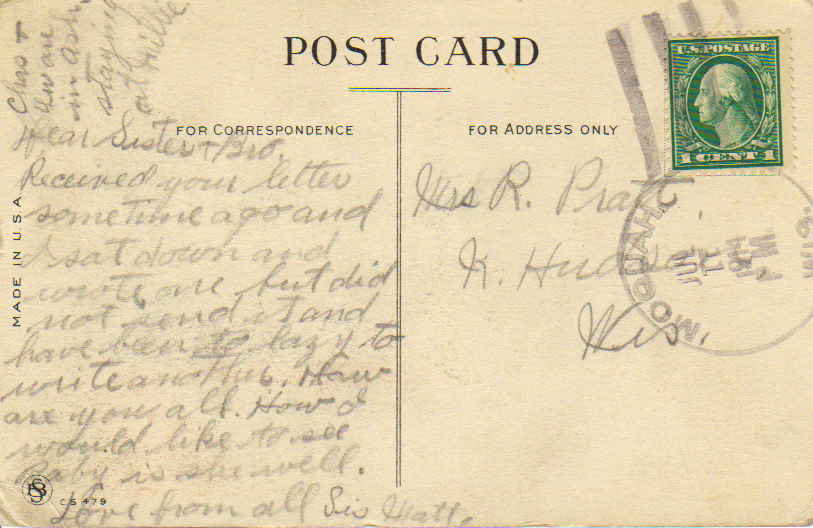 Chas +
in Ash.
staying
at Millie
POST CARD
FOR CORRESPONDENCE
FOR ADDRESS ONLY
U.S. POSTAGE
1 CENT 1
MOQUAH
WIS.
JUL
MADE IN U.S.A
Dear Sister + Bro.
Received your letter
sometime ago and
I sat down and
wrote one, but did
not send it and
have been to lazy to
write another. How
are you all. How I
would like to see
Baby is she well.
Love from all Sis Matt.
CS 479
Mrs R. Pratt,
N. Hudson,
Wis.